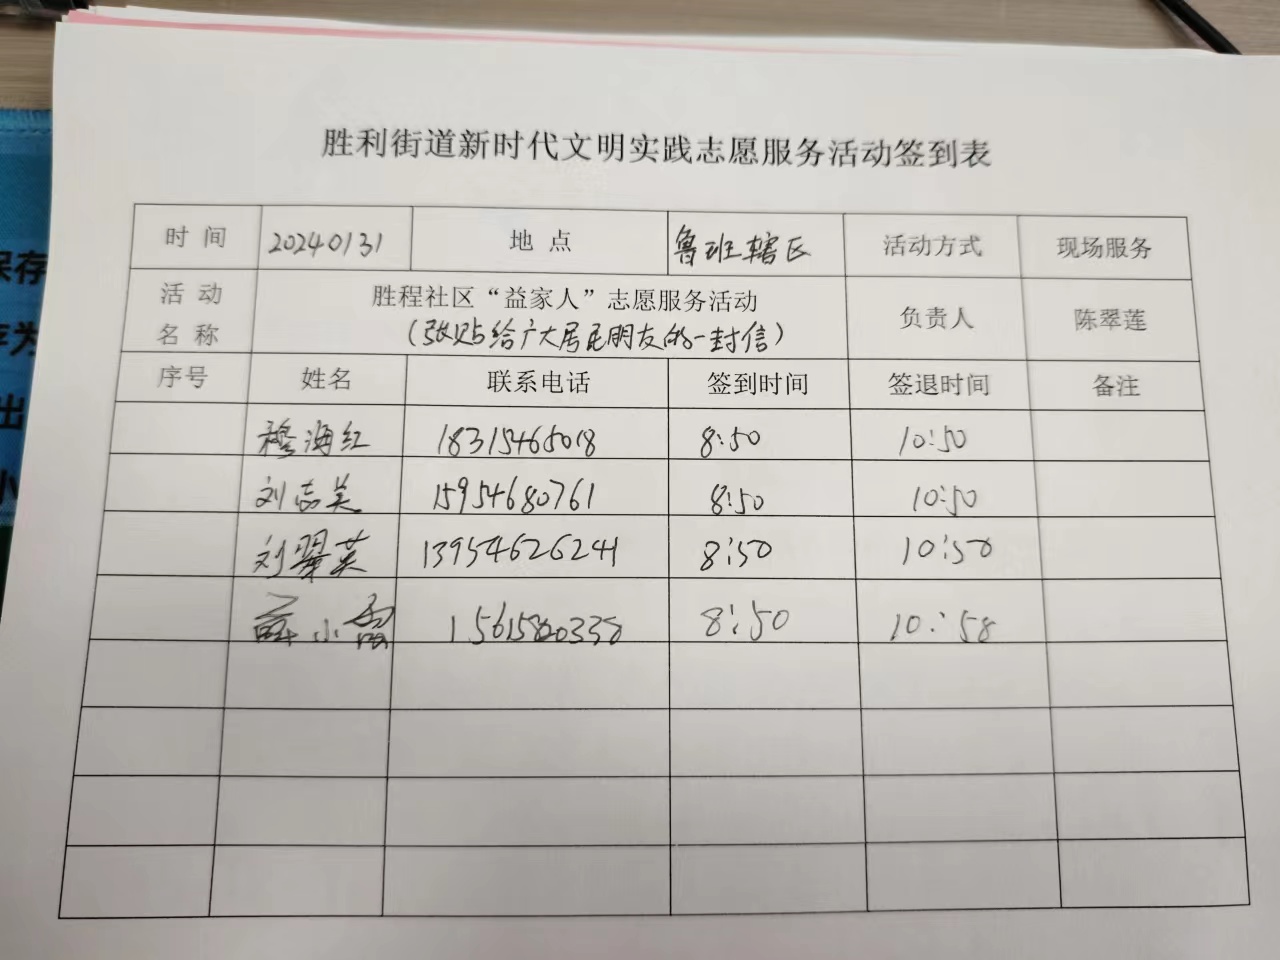 胜利街道新时代文明实践志愿服务活动签到表
时间 20240131 地点 鲁班辖区 活动方式 现场服务
活动名称 胜程社区“益家人”志愿服务活动 负责人 陈翠莲
(张贴给广大居民朋友的一封信)
序号 姓名 联系电话 签到时间 签退时间 备注
穆海红 18315465018 8:50 10:50
刘志美 15954680761 8:50 10:50
刘翠英 13954626241 8:50 10:50
薛小霞 8:50 10:58
保存
存为
出
小